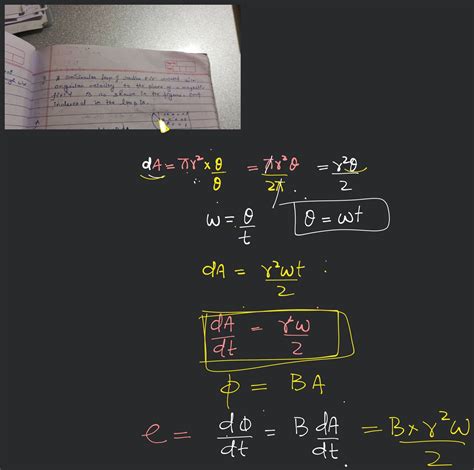 A semicircular loop of radius r is moved in
angular velocity in the plane of a magnetic
field B as shown in the figure. emf
induced in the loop is
dA = πr² × θ/θ = πr²θ/2π = r²θ/2
ω = θ/t θ = ωt
dA = r²ωt/2 :
dA/dt = rω/2
ϕ = BA
e = dΦ/dt = B dA/dt = B×r²ω/2